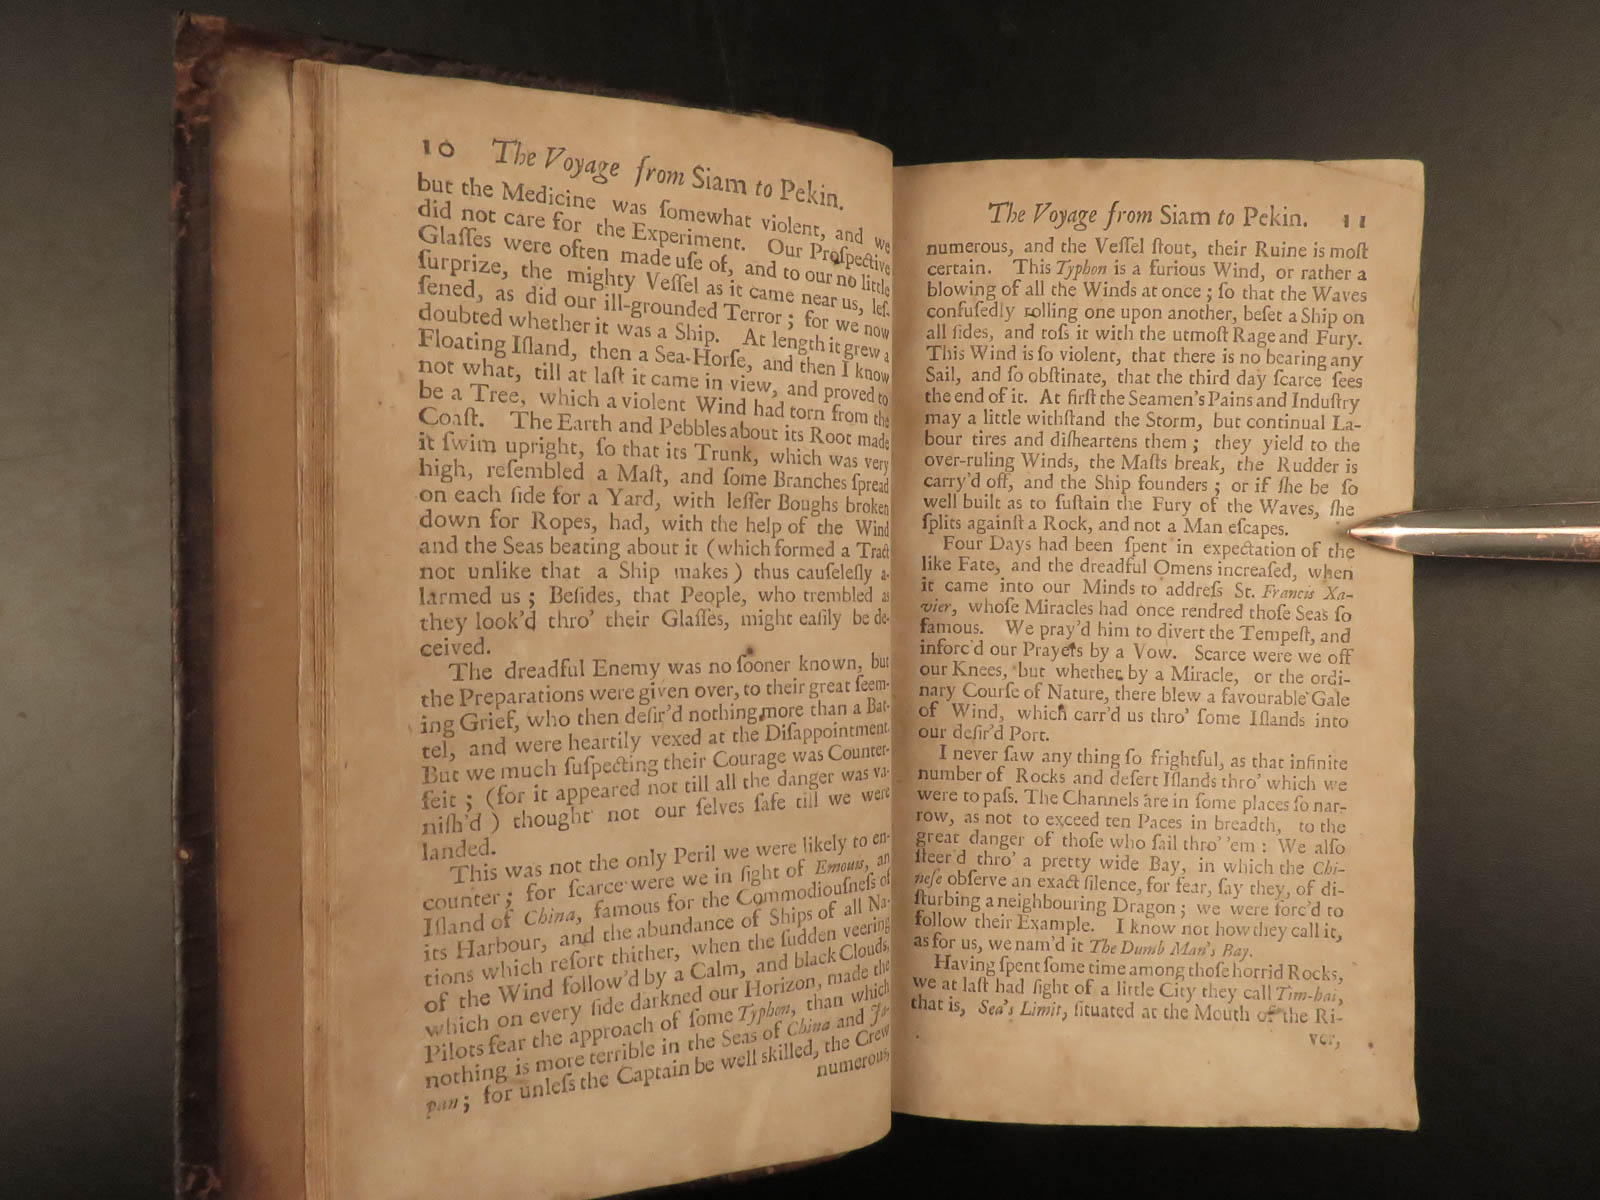 10 The Voyage from Siam to Pekin.
but the Medicine was ſomewhat violent, and we
did not care for the Experiment. Our Proſpective
Glaſſes were often made uſe of, and to our no little
ſurprize, the mighty Veſſel as it came near us, leſ-
ſened, as did our ill-grounded Terror; for we now
doubted whether it was a Ship. At length it grew a
Floating Iſland, then a Sea-Horſe, and then I know
not what, till at laſt it came in view, and proved to
be a Tree, which a violent Wind had torn from the
Coaſt. The Earth and Pebbles about its Root made
it ſwim upright, ſo that its Trunk, which was very
high, reſembled a Maſt, and ſome Branches ſpread
on each ſide for a Yard, with leſſer Boughs broken
down for Ropes, had, with the help of the Wind
and the Seas beating about it (which formed a Tract
not unlike that a Ship makes) thus cauſeleſly a-
larmed us; Beſides, that People, who trembled as
they look'd thro' their Glaſſes, might eaſily be de-
ceived.
The dreadful Enemy was no ſooner known, but
the Preparations were given over, to their great ſeem-
ing Grief, who then deſir'd nothing more than a Bat-
tel, and were heartily vexed at the Diſappointment.
But we much ſuſpecting their Courage was Counter-
feit; (for it appeared not till all the danger was va-
niſh'd) thought not our ſelves ſafe till we were
landed.
This was not the only Peril we were likely to en-
counter; for ſcarce were we in ſight of Emouis, an
Iſland of China, famous for the Commodiouſneſs of
its Harbour, and the abundance of Ships of all Na-
tions which reſort thither, when the ſudden veering
of the Wind follow'd by a Calm, and black Clouds,
which on every ſide darkned our Horizon, made the
Pilots fear the approach of ſome Typhon, than which
nothing is more terrible in the Seas of China and Ja-
pan; for unleſs the Captain be well skilled, the Crew
numerous,
The Voyage from Siam to Pekin. 11
numerous, and the Veſſel ſtout, their Ruine is moſt
certain. This Typhon is a furious Wind, or rather a
blowing of all the Winds at once; ſo that the Waves
confuſedly rolling one upon another, beſet a Ship on
all ſides, and toſs it with the utmoſt Rage and Fury.
This Wind is ſo violent, that there is no bearing any
Sail, and ſo obſtinate, that the third day ſcarce ſees
the end of it. At firſt the Seamen's Pains and Induſtry
may a little withſtand the Storm, but continual La-
bour tires and diſheartens them; they yield to the
over-ruling Winds, the Maſts break, the Rudder is
carry'd off, and the Ship founders; or if ſhe be ſo
well built as to ſuſtain the Fury of the Waves, ſhe
ſplits againſt a Rock, and not a Man eſcapes.
Four Days had been ſpent in expectation of the
like Fate, and the dreadful Omens increaſed, when
it came into our Minds to addreſs St. Francis Xa-
vier, whoſe Miracles had once rendred thoſe Seas ſo
famous. We pray'd him to divert the Tempeſt, and
inforc'd our Prayers by a Vow. Scarce were we off
our Knees, but whether by a Miracle, or the ordi-
nary Courſe of Nature, there blew a favourable Gale
of Wind, which carr'd us thro' ſome Iſlands into
our deſir'd Port.
I never ſaw any thing ſo frightful, as that infinite
number of Rocks and deſert Iſlands thro' which we
were to paſs. The Channels are in ſome places ſo nar-
row, as not to exceed ten Paces in breadth, to the
great danger of thoſe who ſail thro' 'em: We alſo
ſteer'd thro' a pretty wide Bay, in which the Chi-
neſe obſerve an exact ſilence, for fear, ſay they, of di-
ſturbing a neighbouring Dragon; we were forc'd to
follow their Example. I know not how they call it,
as for us, we nam'd it The Dumb Man's Bay.
Having ſpent ſome time among thoſe horrid Rocks,
we at laſt had ſight of a little City they call Tim-hai,
that is, Sea's Limit, ſituated at the Mouth of the Ri-
ver,